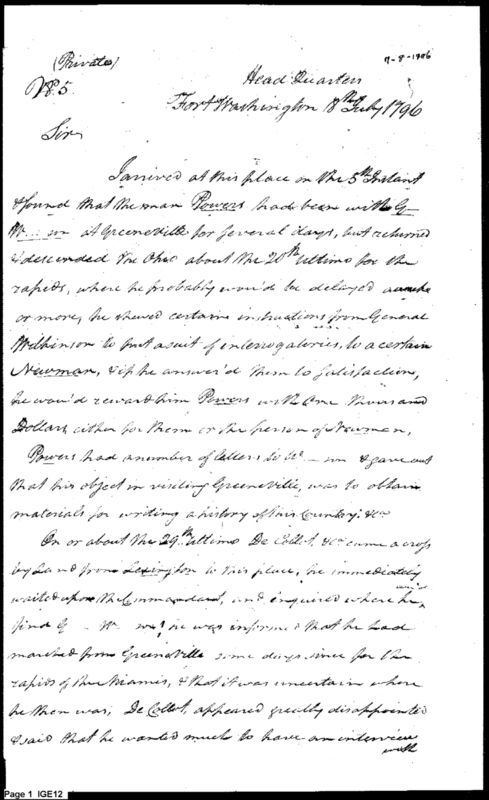 (Private)
7-8-1796
No. 5
Head Quarters
Fort Washington 8th July 1796
Sir
I arrived at this place on the 5th Instant
& found that the man Powers had been with G
W...on at Greeneville for several days, but returned
& descended the Ohio about the 20th Ultimo for the
rapids, where he probably wou'd be delayed a week
or more, he shewed certain instructions from General
Wilkinson to put a suit of interrogatories, to a certain
Newman, & if he answer'd them to satisfaction,
he wou'd reward him Powers with One thousand
Dollars either for them or the person of Newman,
Powers had a number of letters to W—on & gave out
that his object in visiting Greeneville, was to obtain
materials for writing a history of this Country: &ca
On or about the 29th Ultimo De Collot, &ca came across
by Land from Lexington to this place, he immediately
waited upon the Commandant, and enquired where he
find G W he was informed that he had
marched from Greeneville some days since for the
rapids of the Miamis, & that it was uncertain where
he then was; De Collot, appeared greatly disappointed
& said that he wanted much to have an interview
with
Page 1 IGE12